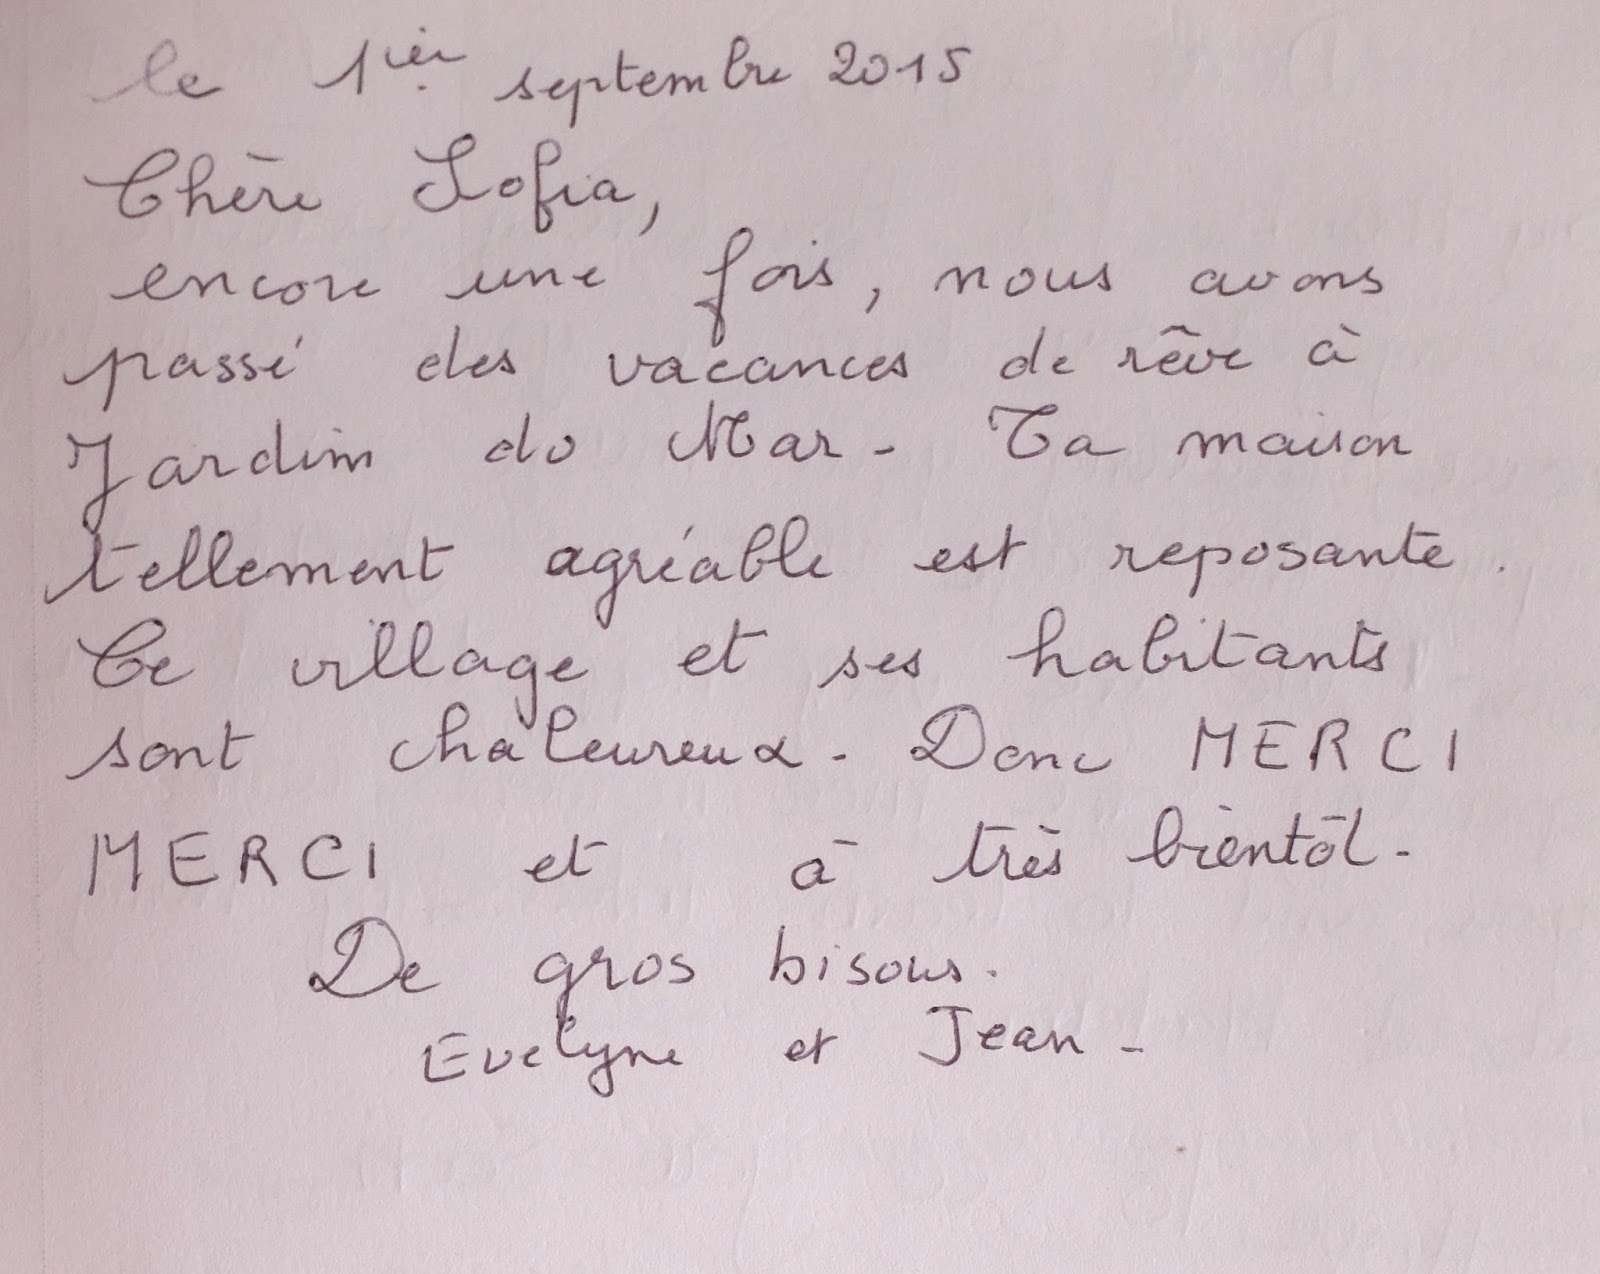 le 1ier septembre 2015
Chère Sofia,
encore une fois, nous avons
passé des vacances de rêve à
Jardim do Mar - Ta maison
tellement agréable est reposante.
Ce village et ses habitants
sont chaleureux - Donc MERCI
MERCI et à très bientôt -
De gros bisous.
Evelyne et Jean -